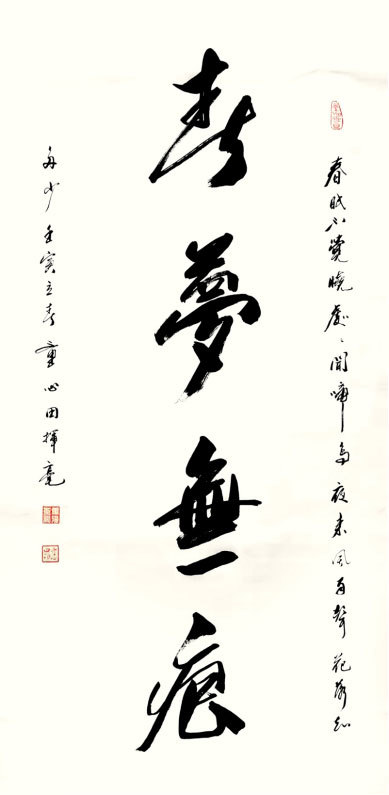 春眠不覺曉處、聞啼鳥夜來風雨聲花落知
春夢無痕
多少壬寅立春童心田揮毫